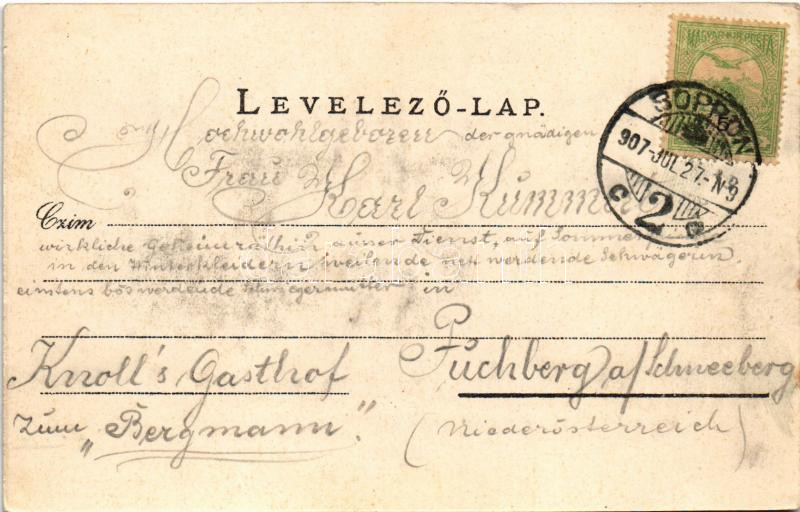 MAGYAR KIR. POSTA
LEVELEZŐ-LAP.
SOPRON
907 JUL 27. N 9
C 2 C
Hochwohlgeboren der gnädigen
Frau Karl Kumm
Czim
wirkliche Geheimräthin ausser Dienst, auf Sommer
in den Winterkleidern weilende nett werdende Schwägerin,
einstens bös werdende Schwiegermutter in
Puchberg a/Schneeberg
Knoll's Gasthof
zum „Bergmann".
(Niederösterreich)